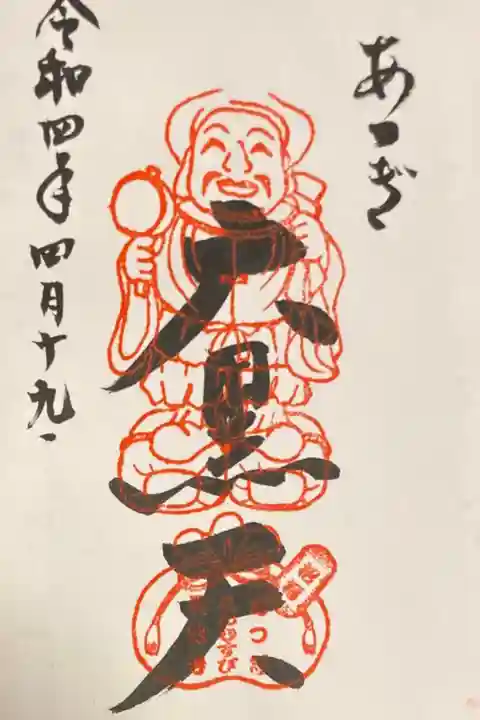 あかぎ
大黒天
令和四年四月十九